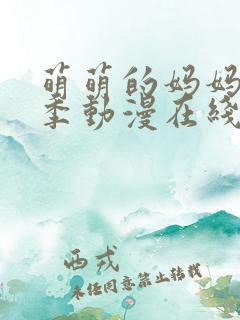 萌萌的妈妈
季動漫在綫
西戎
未经同意禁止转载